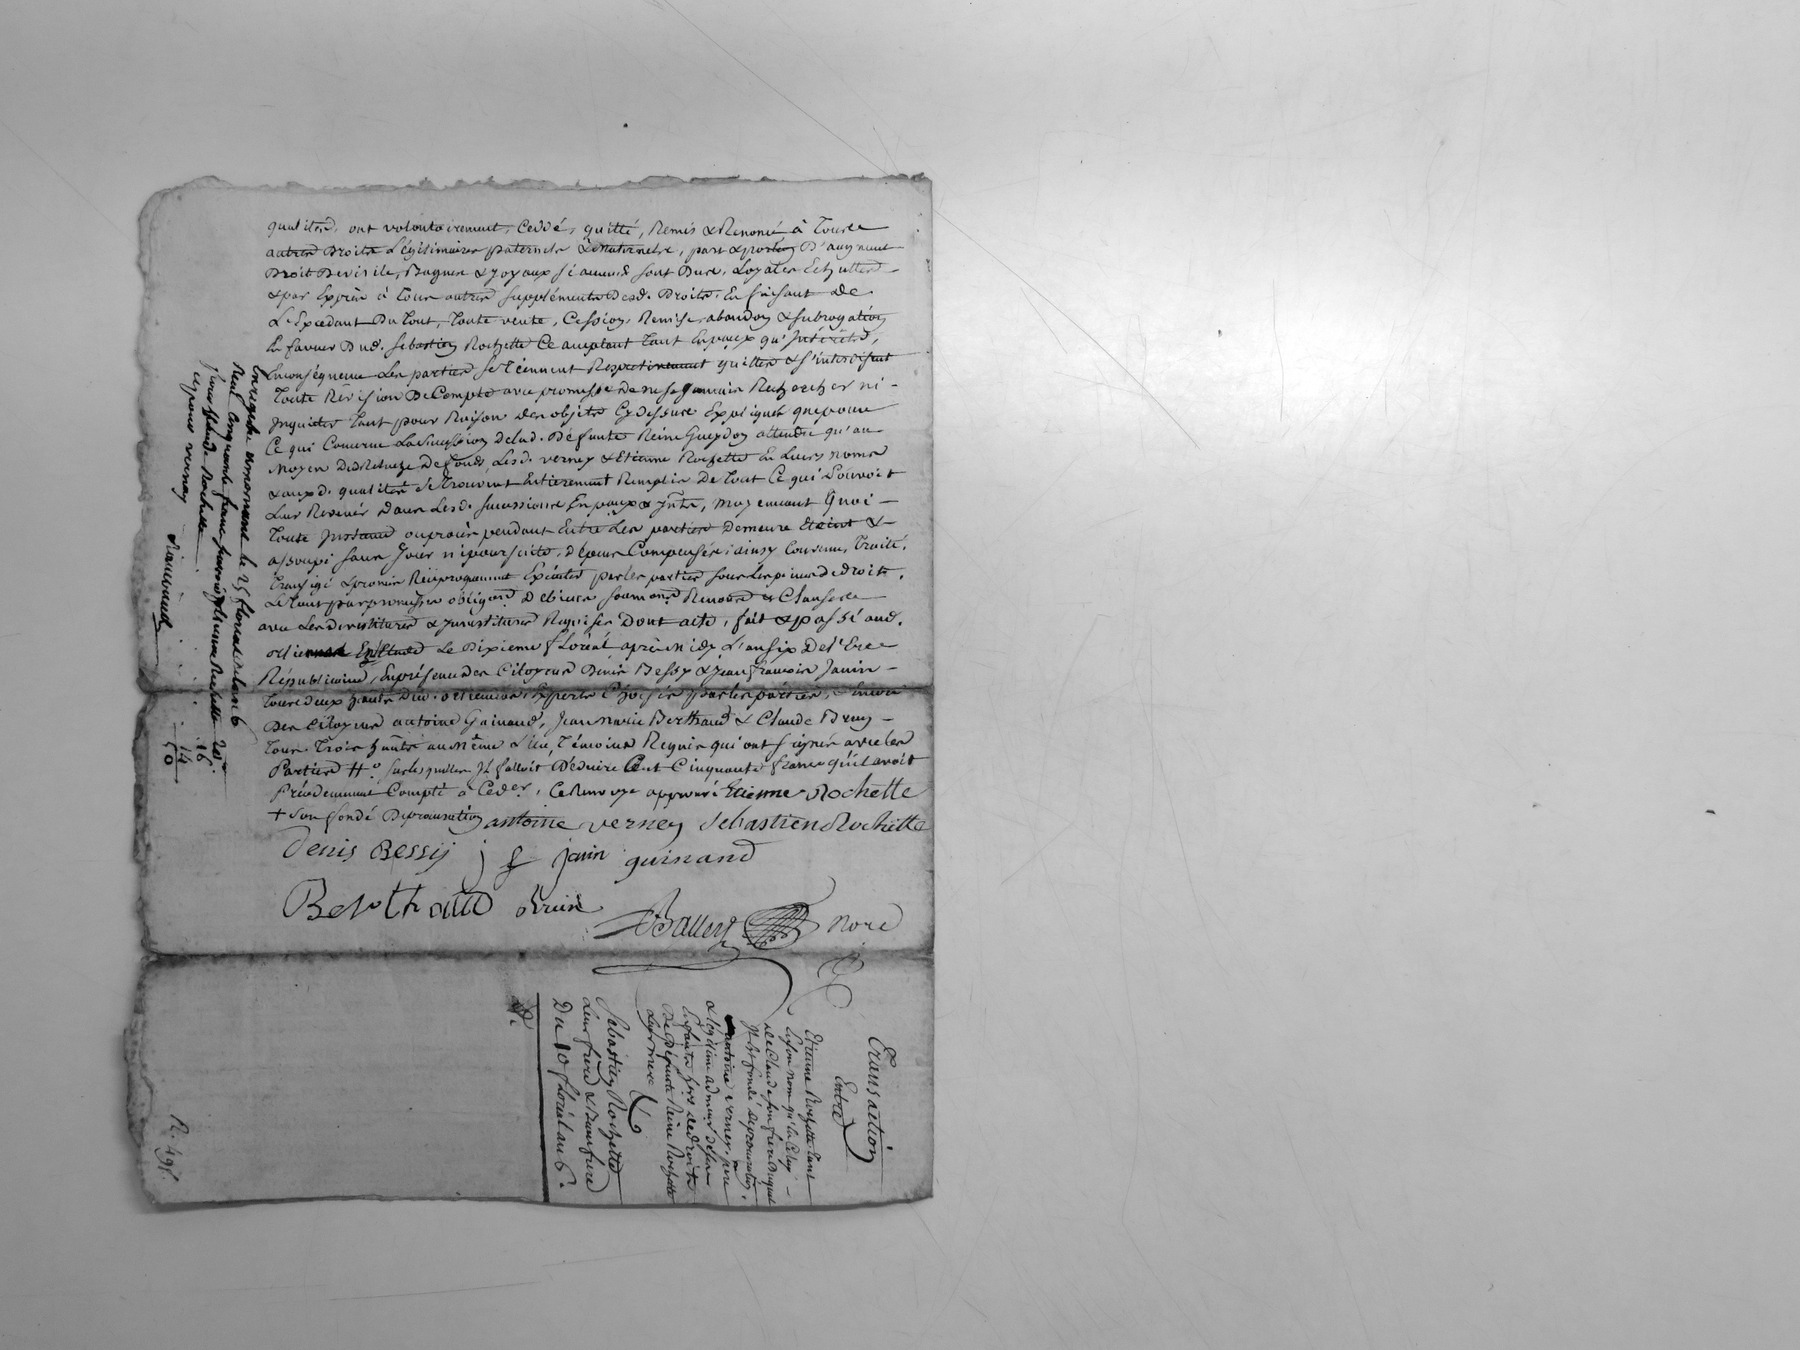 qualités, ont volontairement, Ceddé, quitté, Remis & Renoncé à Tous
autres Droits Légitimaires paternels & Maternels, part & portion D'augment
Droit De virile, Bagues & Joyaux
& par Exprès à Tous autres supplements Desd. Droits, En faisant De
L'Excedant Du Tout, Toute vente, Cession, Remise, abandon & subrogation
En faveur Dud. Sebastien Rochette Ce acceptant Tant En paux qu'Intérêts,
Enconséquence Les parties se Tiennent Respectivement quittes & s'interdisent
Toute Révision De Compte avec promesse De ne se jamais Rechercher ni -
Inquiéter Tant pour Raison des objets Cy dessus Expliqués que pour
Ce qui Concerne La succession delad. Défunte Reine Gueydon attendu qu'au
Moyen Les d. verney & Etienne Rochette En Leurs noms
& auxd. qualités se Trouvent Entierement Remplis De Tout Ce qui Pouvoit
Leur Revenir Dans Lesd. successions En paux & Jnts, Moyennant Quoi -
Toute Instance ou procès pendants Entre Les parties Demeure Eteint & -
assoupi sans Jouir ni poursuite, Dépens Compensés; ainsy Convenu, Traité,
Transigé & promis Réciproquement Exécuter par les parties sous les peines de droit.
Le Tout par promesses obligons De biens soumons Renons & Clauses
avec Les Devestitures & Jnvestitures Requises Dont acte, fait & passé aud.
En Etude Le Dixieme floréal après Midy L'an six De l'Ere
Républicaine, En présence des Citoyens Denis Bessy & Jean François Janin -
Tous deux Experts Choisis par les parties, & Encore
Des Citoyens antoine Guinand, Jean Marie Berthaud & Claude Bruy -
Tous Trois au Même Lieu, Témoins Requis qui ont signés avec les
Parties # sur lesquelles Jl falloit Déduire Cent Cinquante francs qu'il avoit
Précedemment Compté à Ceder, Ce Renvoye approuvé Etienne Rochette
+ Son fondé De procuration antoine verney Sebastien Rochette
Denis Bessy j f janin guinand
Berthaud Bruin
Balley Nore
Enregistré a mornant le 25 floréal an 6
Reçu Cinquante francs pour Etienne Rochette
pour Claude Rochette
et pour verney
16
14
50
Transaction
Entre
Etienne Rochette Tant
En son nom qu'En Celuy -
De Claude son frere Duquel
Jl Est fondé De procuration,
antoine verney pere
& légitime admeur de ses
Enfants hers de droits
De Défunte Reine Rochette
Leur mere
&
Sebastien Rochette
Leur frere & Beau frere
Du 10 floréal an 6.